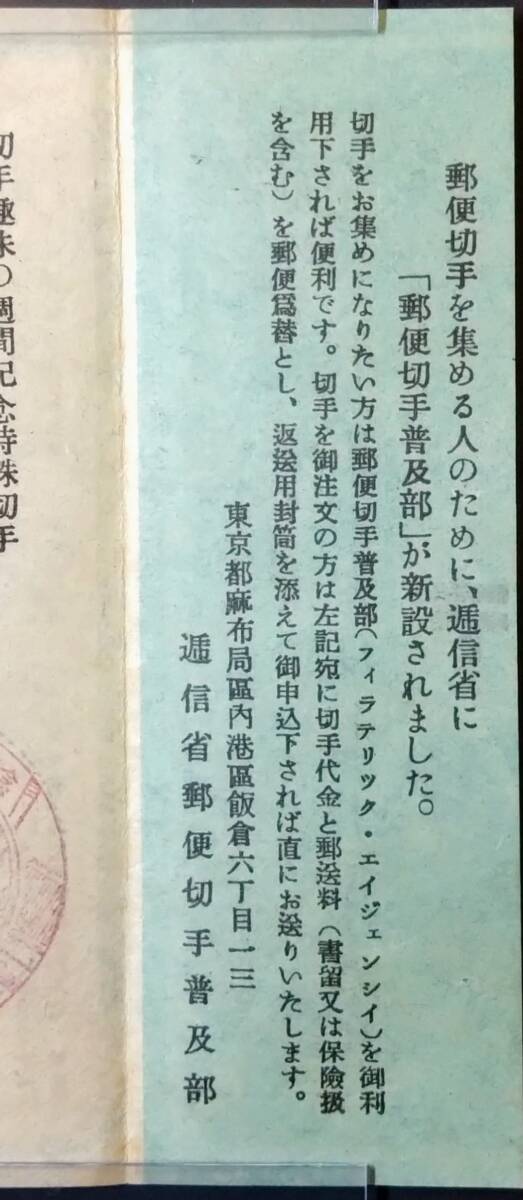 郵便切手を集める人のために、逓信省に
「郵便切手普及部」が新設されました。
切手をお集めになりたい方は郵便切手普及部（フィラテリック・エイジェンシイ）を御利
用下されば便利です。切手を御注文の方は左記宛に切手代金と郵送料（書留又は保險扱
を含む）を郵便爲替とし、返送用封筒を添えて御申込下されば直にお送りいたします。
東京都麻布局區內港區飯倉六丁目一三
逓信省郵便切手普及部
切手趣味の週間記念特殊切手